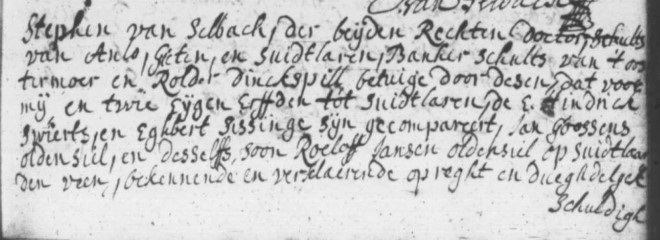 Stephen van Selbach, der beijden Rechten Doctor, Schults
van Anlo, Geten, en Suidtlaren, Banker Schults van 't oos
termoer en Rolder Dinckspill betuige door desen, dat voor
mij en twie Eijgen Erffden tot Suidtlaren, de E. Hindrick
Sijwerts, en Eghbert Sissinge sijn gecompareert, Jan Goossens
oldensiel, en desselffs soon Roeloff Jansen oldensiel op Suidtlaar
der veen, bekennende en verclaerende opreght en dueghdelijck
Schuldigh